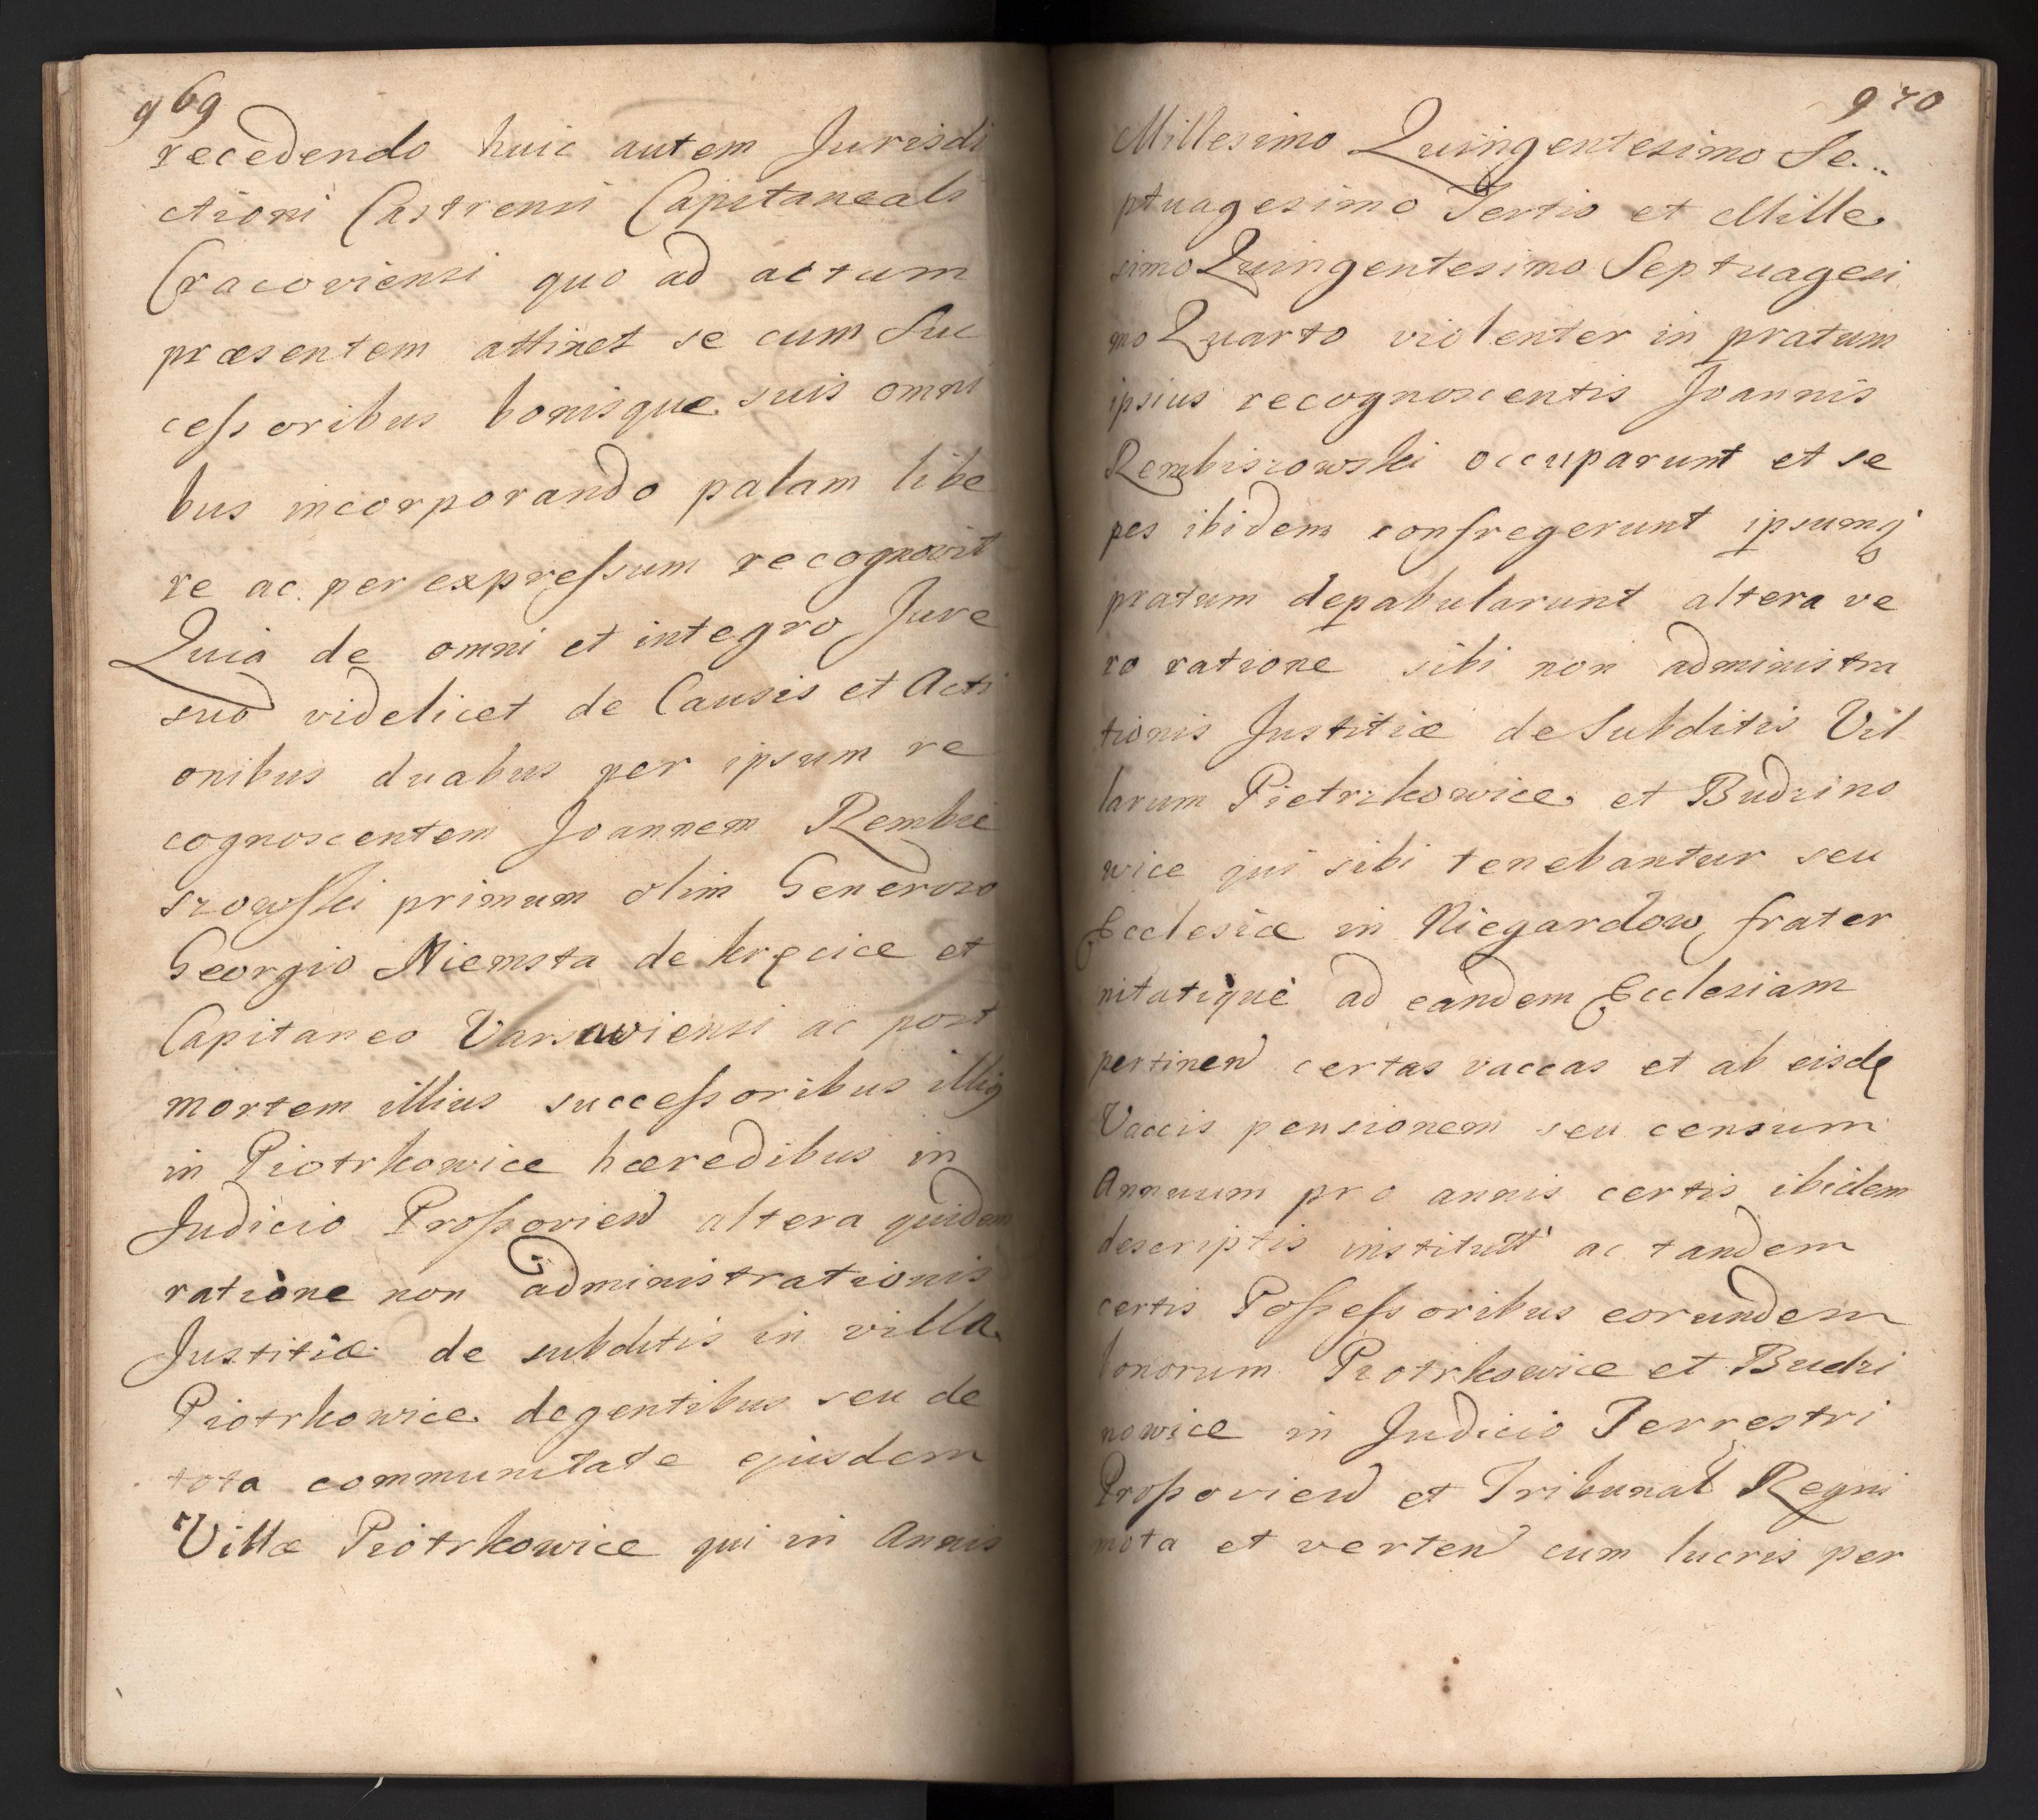 969
recedendo huic autem Jurisdi
ctioni Castrensi Capitaneali
Cracoviensi quo ad actum
præsentem attinet se cum Suc
cessoribus bonisque suis omni
bus incorporando palam libe
re ac per expressum recognovit
Quia de omni et integro Jure
suo videlicet de Causis et Acti
onibus duabus per ipsum re
cognoscentem Joannem Rembie
szowski primum olim Generoso
Georgio Niemsta de Kręcice et
Capitaneo Varsaviensi ac post
mortem illius successoribus illiq
in Piotrkowice hæredibus in
Judicio Proszovien altera quidem
ratione non administrationis
Justitiæ de subditis in villa
Piotrkowice degentibus seu de
tota communitate ejusdem
Villæ Piotrkowice qui in Annis
970
Millesimo Quingentesimo Se..
ptuagesimo Tertio et Mille
simo Quingentesimo Septuagesi
mo Quarto violenter in pratum
ipsius recognoscentis Joannis
Rembiszowski occuparunt et se
pes ibidem confregerunt ipsumq
pratum depabularunt altera ve
ro ratione sibi non administra
tionis Justitiæ de Subditis Vil
larum Pietrzkowice et Budzino
wice qui sibi tenebantur seu
Ecclesiæ in Niegardow frater
nitatique ad eandem Ecclesiam
pertinen certas vaccas et ab eisdę
Vaccis pensionem seu censum
Annuum pro annis certis ibidem
descriptis institutt ac tandem
certis Possessoribus eorundem
bonorum Piotrkowice et Budzi
nowice in Judicio Terrestri
Proszovien et Tribunal Regni
mota et verten cum lucris per